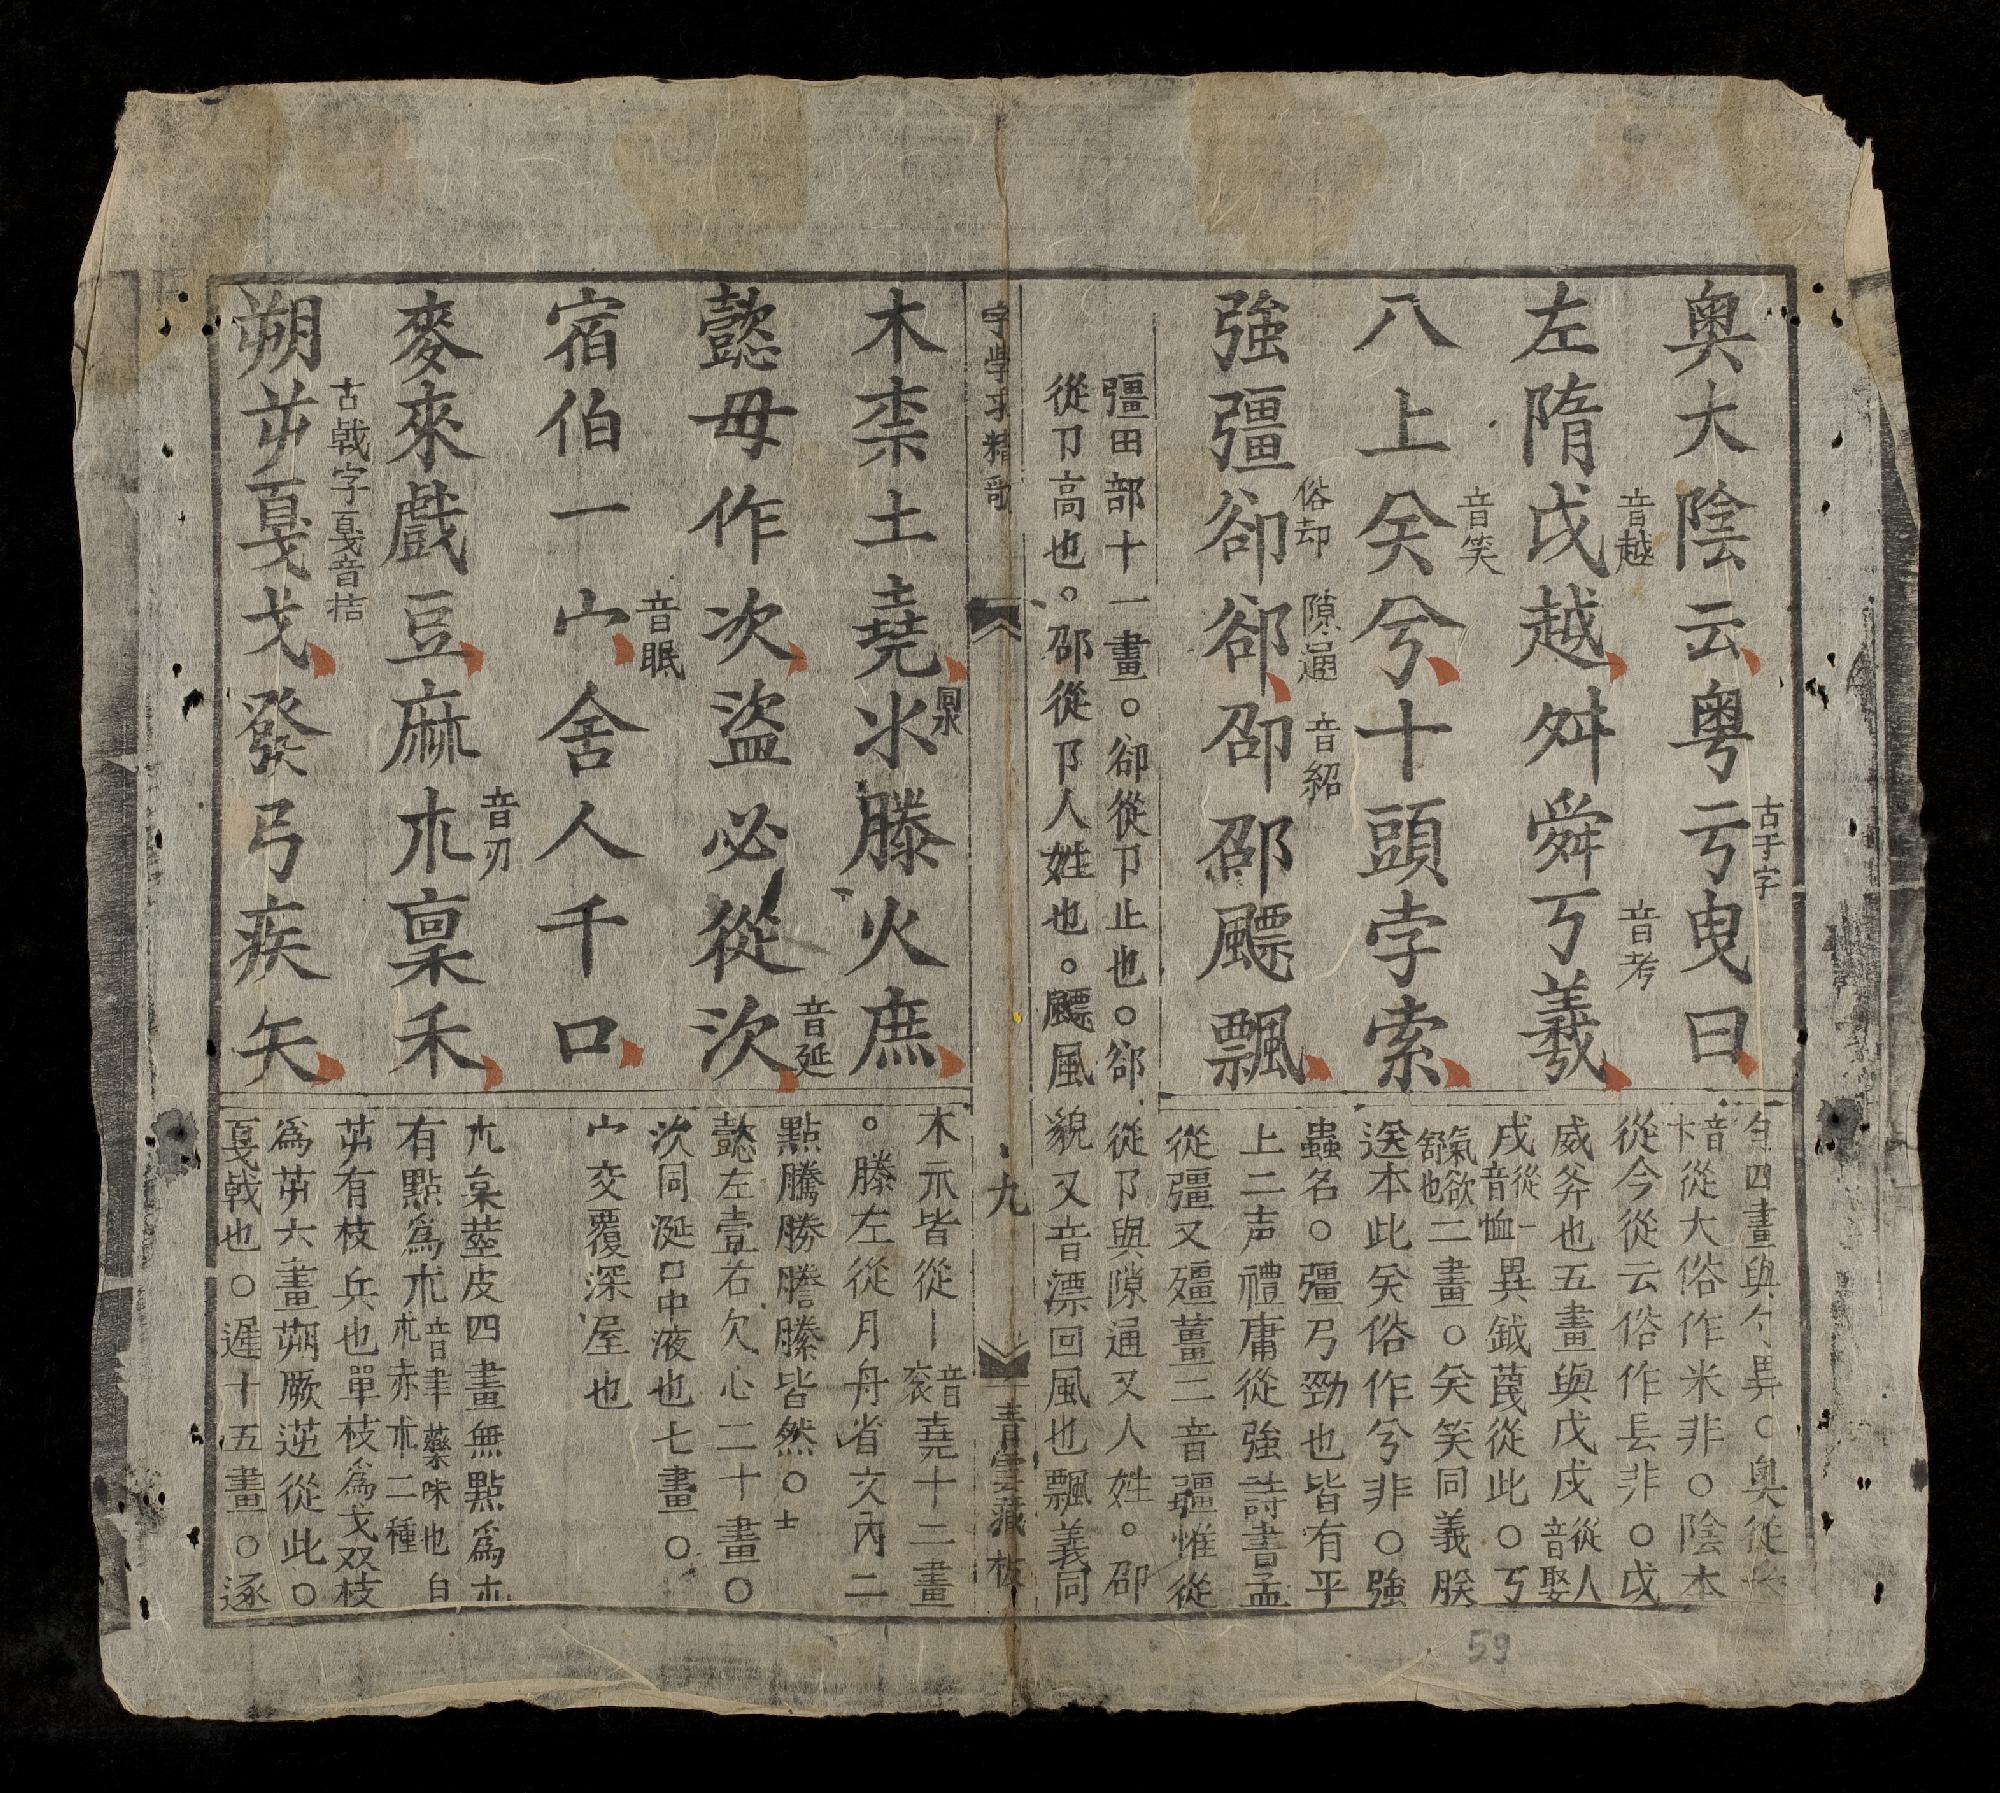 奧大陰云粵亏曳曰
古于字
左隋戉越舛舜丂羲
音越
音考
八上𥬇兮十頭孛索
音笑
強彊卻郤卲邵飃飄
俗却
隙通
音紹
彊田部十一畫○卻從卩止也○郤
從卩高也○邵從卩人姓也○飃風
四畫與勹異○奧從
音
卞
從大俗作米非○陰本
從今從云俗作镸非○戉
威斧也五畫與戊戍
音從
娶人
戌
音從
恤一
異鉞蔑從此○丂
氣欲
舒也
二畫○矢笑同義朕
送本此关俗作兮非○強
蟲名○彊弓勁也皆有平
上二声禮庸從強詩書孟
從彊又殭薑二音疆惟從
從卩與隙通又人姓○卲
貌又音漂回風也飄義同
字學求精歌
九
青雲藏板
木柰土堯氺滕火庶
同水
懿毋作次盜必從㳄
音延
宿伯一宀舍人千口
音眠
麥來戲豆麻朮稟禾
音刃
朔茻戛戈發弓疾矢
古戟字戛音拮
木示皆從丨
音
袞
堯十二畫
○滕左從月舟省文內二
點騰勝謄縢皆然○士
懿左壹右欠心二十畫○
㳄同涎口中液也七畫○
宀交覆深屋也
朩枲莖皮四畫無點爲朩
有點爲朮
音聿藥味也白
朮赤朮二種
茻有枝兵也單枝爲戈双枝
爲茻六畫朔厥逆從此○
戛戟也○遲十五畫○逐